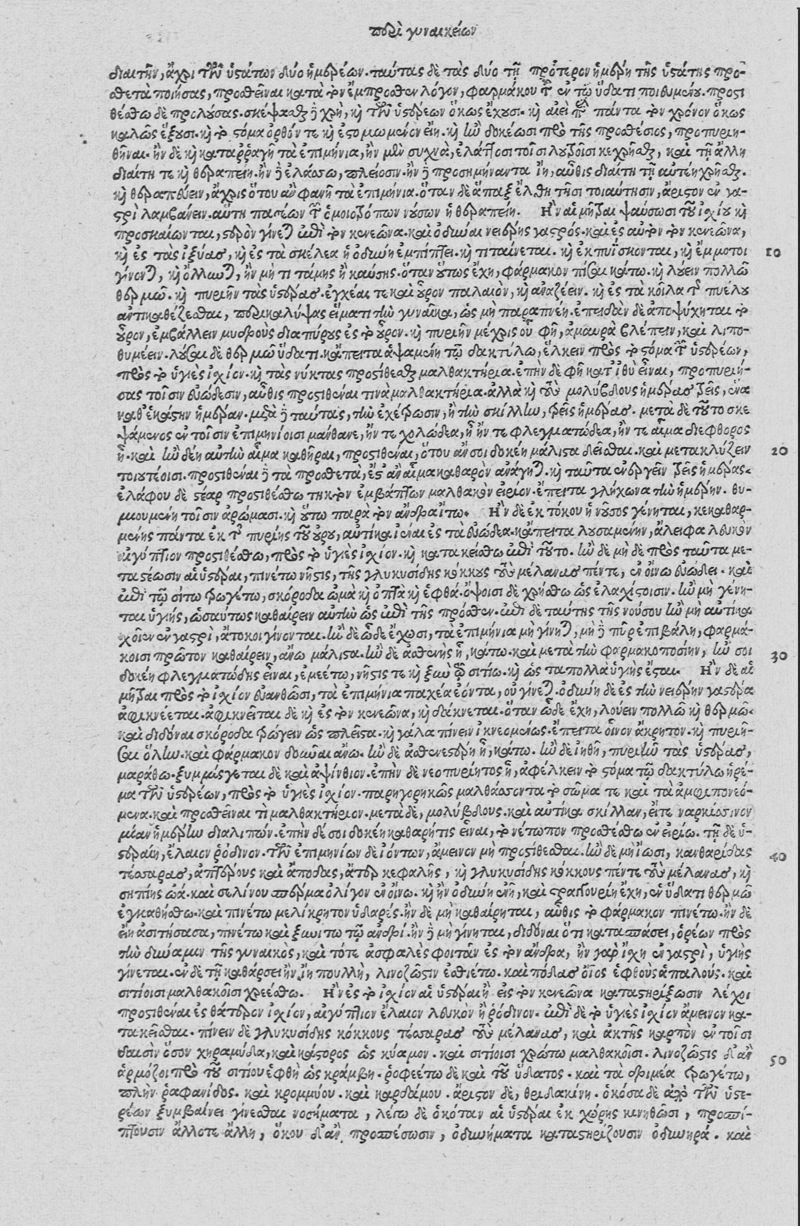 περὶ γυναικείων
δίαιτην, ἄχρι τῶν ὑστάτων δύο ἡμερέων. ταύτας δὲ τὰς δύο τῇ πρότερον ἡμέρῃ τῆς ὑστάτης προσ-
θετὰ ποιήσας, προσθεῖναι κατὰ τὸν ἔμπροσθεν λόγον, φαρμάκου τοῦ ἐν τῷ ὕδατι ποιευμένου. προστι
θέσθω δὲ προλούσας. σκέψασθαι δὲ χρὴ, καὶ τῶν ὑστερέων ὅκως ἔχουσι. καὶ αἰεὶ παρὰ πάντα τὸν χρόνον ὅκως
καλῶς ἕξουσι. καὶ τὸ στόμα ὀρθόν τε καὶ ἐστομωμένον ᾖ. καὶ ἢν δοκέωσι πρὸ τῆς προσθέσιος, προπυριη-
θῆναι. ἢν δὲ καὶ καταῤῥαγῇ τὰ ἐπιμήνια, ἢν μὲν συχνὰ, ἐλάττοσι τοῖσι λοιβοῖσι κεχρῆσθαι, καὶ τῇ ἄλλῃ
διαίτῃ τε καὶ θεραπείῃ. ἢν δὲ ἐλάσσω, πλείοσιν. ἢν δὲ προσημήναντα ἴῃ, αὖθις διαίτῃ τῇ αὐτῇ χρῆσθαι.
καὶ θεραπεύειν, ἄχρις ὅτου ἂν φανῇ τὰ ἐπιμήνια. ὅταν δὲ ἅπαξ ἔλθῃ τῇσι τοιαύτῃσιν, ἄριστον ἐν γα-
στρὶ λαμβάνειν. αὕτη πασέων τῶν ὁμοιοτρόπων νούσων ἡ θεραπείη. Ἢν αἱ μῆτραι ψαύσωσι τοῦ ἰσχίου καὶ
προσκέωνται, στερεὸν γίνεται ἐπὶ τὸν κενεῶνα. καὶ ὀδύναι νειαίρης γαστρός. καὶ ἐς αὐτὸν τὸν κενεῶνα,
καὶ ἐς τὰς ἰξύας, καὶ ἐς τὰ σκέλεα ἡ ὀδύνη ἐμπίπτει. καὶ τιταίνεται. καὶ ἐκπυΐσκονται, καὶ ἔμμοτοι
γίνονται, καὶ ὄλλυνται, ἢν μή τι τάμῃς ἢ καύσῃς. ὅταν οὕτως ἔχῃ, φάρμακον πῖσαι κάτω. καὶ λούειν πολλῷ
θερμῷ. καὶ πυριῆν τὰς ὑστέρας. ἐγχέαι τε καὶ οὖρον παλαιὸν, καὶ ἀναζέειν. καὶ ἐς τὰ κοῖλα τοῦ πυέλου
ἀντικαθίζεσθαι, περικαλύψας εἵματι τὴν γυναῖκα, ὡς μὴ παραπνέῃ. ἐπειδὰν δὲ ἀποψύχηται τὸ
οὖρον, ἐμβάλλειν μύδρους διαπύρους ἐς τὸ οὖρον. καὶ πυριῆν μέχρις οὗ φῇ, ἀμαυρὰ βλέπειν, καὶ λιπο-
θυμέειν. λοῦσαι δὲ θερμῷ ὕδατι. κἄπειτα ἁψαμένη τῷ δακτύλῳ, ἕλκειν πρὸς τὸ στόμα τῶν ὑστερέων,
πρὸς τὸ ὑγιὲς ἰσχίον. καὶ τὰς νύκτας προστίθεσθαι μαλθακτήρια. ἐπὴν δὲ φῇ κατ' ἰθὺ εἶναι, προπυριή-
σας τοῖσιν εὐώδεσιν, αὖθις προστιθέναι τινὰ μαλθακτήρια. ἀλλὰ καὶ τοὺς μολύβδους ἡμέρας τρεῖς, ἕνα
καθ' ἑκάστην ἡμέραν. μετὰ δὲ ταύτας, τὴν ἐχέφρωσιν, ἢ τὴν σκίλλην, τρεῖς ἡμέρας. μετὰ δὲ τοῦτο σκε
ψάμενος ἐν τοῖσιν ἐπιμηνίοισι μάνθανε, ἤν τε χολώδεα, ἢ ἤν τε φλεγματώδεα, ἤν τε αἷμα διεφθορὸς
ᾖ. καὶ ἢν δέῃ αὐτὴν αἷμα καθῆραι, προστιθέναι, ὅτου ἄν σοι δοκέῃ μάλιστα δεῖσθαι. καὶ μετακλύζειν
τοιουτέοισι. προστιθέναι δὲ τὰ προσθετὰ, ἔστ' ἂν αἷμα καθαρὸν ἀνάγηται. καὶ ταῦτα ἐνεργεῖν τρεῖς ἡμέρας.
ἐλάφου δὲ στέαρ προστιθέσθω τηκτὸν ἐμβάπτων μαλθακὸν εἴριον. ἔπειτα γλήχωνα τὴν ἡμέρην. θυ-
μιουμένη τοῖσιν ἀρώμασι. καὶ οὕτω παρὰ τὸν ἄνδρα ἴτω. Ἢν δὲ ἐκ τόκου ἡ νοῦσος γένηται, κεκαθαρ-
μένης πάντα ἐκ τοῦ πυρίης τοῦ οὔρου, αὐτίκα ἰέναι ἐς τὰ εὐώδεα. κἄπειτα λουσαμένην, ἄλειφα λευκὸν
αἰγύπτιον προστιθέσθω, πρὸς τὸ ὑγιὲς ἰσχίον. καὶ κατακείσθω ἐπὶ τοῦτο. ἢν δὲ μὴ δὲ πρὸς ταῦτα με-
ταστέωσιν αἱ ὑστέραι, πινέτω νῆστις, τῆς γλυκυσίδης κόκκους τοὺς μέλανας πέντε, ἐν οἴνῳ εὐώδει. καὶ
ἐπὶ τῷ σίτῳ φαγέτω, σκόροδα ὠμὰ καὶ ὀπτὰ καὶ ἑφθά. ὄψοισι δὲ χρήσθω ὡς ἐλαχίστοισιν. ἢν μὴ γένη-
ται ὑγιὴς, ὡσαύτως καθαίρειν αὐτὴν ὡς ἐπὶ τῆς πρόσθεν. ἐπὶ δὲ ταύτης τῆς νούσου ἢν μὴ αὐτίκα
σχῶσιν ἐν γαστρὶ, ἄτοκοι γίνονται. ἢν δὲ ὧδε ἔχωσι, τὰ ἐπιμήνια μὴ γίνηται, μὴ δὲ πῦρ ἐπιβάλῃ, φαρμά-
κοισι πρῶτον καθαίρειν, ἄνω μάλιστα. ἢν δὲ ἀσθενὴς ᾖ, κάτω. καὶ μετὰ τὴν φαρμακοποσίην, ἤν σοι
δοκέῃ φλεγματώδης εἶναι, ἐμεέτω, νῆστις τε καὶ ξὺν τῷ σιτίῳ. καὶ ὡς τὰ πολλὰ ὑγιὴς ἔσται. Ἢν δὲ αἱ
μῆτραι πρὸς τὸ ἰσχίον ἐνανθῶσι, τὰ ἐπιμήνια παχέα ἐόντα, οὐ γίνεται. ὀδύνη δὲ ἐς τὴν νειαίρην γαστέρα
ἀφικνέεται. ἀφικνέεται δὲ καὶ ἐς τὸν κενεῶνα, καὶ δάκνεται. ὅταν ὧδε ἔχῃ, λούειν πολλῷ καὶ θερμῷ.
καὶ διδόναι σκόροδα φαγεῖν ὡς πλεῖστα. καὶ γάλα πίνειν ἱκνεομένως. ἔπειτα οἶνον ἄκρητον. καὶ πυριῆ-
σαι ὅλην. καὶ φάρμακον δοῦναι ἄνω. ἢν δὲ ἀσθενεστέρη ᾖ, κάτω. ἢν δὲ ἰηθῇ, πυριῆν τὰς ὑστέρας,
μαράθῳ. ξυμμίσγεται δὲ καὶ ἀψίνθιον. ἐπὴν δὲ νεοπυρίητος ᾖ, ἀφέλκειν τὸ στόμα τῷ δακτύλῳ ἠρέ-
μα τῶν ὑστερέων, πρὸς τὸ ὑγιὲς ἰσχίον. παρηγορικῶς μαλθάσσοντα τὸ σῶμα τε καὶ τὰ ἀμφιπονεό-
μενα. καὶ προσθεῖναί τι μαλθακτήριον. μετὰ δὲ, μολύβδους. καὶ αὐτίκα σκίλλαν, εἶτε ναρκίσσινον
μίαν ἡμέρην διαλιπών. ἐπὴν δέ σοι δοκέῃ καθαρή τις εἶναι, τὸ νέτωπον προσθέσθω ἐν εἰρίῳ. τῇ δὲ ὑ-
στεραίῃ, ἔλαιον ῥόδινον. τῶν ἐπιμηνίων δὲ ἰόντων, ἄμεινον μὴ προστίθεσθαι. ἢν δὲ μὴ ἴωσι, κανθαρίδας
τέσσαρας, ἀπτέρους καὶ ἄποδας, ἄτερ κεφαλῆς, καὶ γλυκυσίδης κόκκους πέντε τοὺς μέλανας, καὶ
σηπίης ὠά. καὶ σελίνου σπέρμα ὀλίγον ἐν οἴνῳ. καὶ ἢν ὀδύνη ἐνῇ, καὶ στραγγουρίη ἔχῃ, ἐν ὕδατι θερμῷ
ἐγκαθήσθω. καὶ πινέτω μελίκρητον ὑδαρές. ἢν δὲ μὴ καθαίρηται, αὖθις τὸ φάρμακον πινέτω. ἢν δὲ
ἔῃ ἀσιτήσασα, πινέτω καὶ ξυνίτω τῷ ἀνδρί. ἢν δὲ μὴ γίνηται, διδόναι ὅ τι κατασπάσει, ὁρέων πρὸς
τὴν δύναμιν τῆς γυναικός, καὶ τότε ἀσφαλὲς φοιτᾶν ἐς τὸν ἄνδρα, ἢν γὰρ ἴσχῃ ἐν γαστρὶ, ὑγιὴς
γίνεται. ἐν δὲ τῇ καθάρσει ἢν ᾖ πουλλὴ, λινόζωστιν ἐσθιέτω. καὶ πόδας οἰὸς ἑφθοὺς ἁπαλούς. καὶ
σιτίοισι μαλθακοῖσι χρεέσθω. Ἢν ἐς τὸ ἰσχίον αἱ ὑστέραι ἢ εἰς τὸν κενεῶνα καταστηρίξωσιν λέχρι
προστιθέναι ἐς θάτερον ἰσχίον, αἰγύπτιον ἔλαιον λευκὸν ἢ ῥόδινον. ἐπὶ δὲ τὸ ὑγιὲς ἰσχίον ἄμεινον κα-
τακέεσθαι. πίνειν δὲ γλυκυσίδης κόκκους τέσσαρας τοὺς μέλανας, καὶ ἀκτῆς καρπὸν ἐν τοῖσι
δακτύλοισιν ὅσον χηραμύδα, καὶ κάστορος ὡς κύαμον. καὶ σιτίοισι χρέωτο μαλθακοῖσι. λινόζωστις δ' ἂν
ἁρμόζοι πρὸ τοῦ σιτίου ἑφθὴ ὡς κράμβη. ῥοφεέτω δὲ καὶ τοῦ ὕδατος. καὶ τὰ δριμέα φαγέτω,
πλὴν ῥαφανίδος. καὶ κρομμύου. καὶ καρδάμου. ἄριστον δὲ, θριδακίνη. ὁκόσα δὲ ἀπὸ τῶν ὑστε-
ρέων ξυμβαίνει γίνεσθαι νοσήματα, λέγω δὲ ὁκόταν αἱ ὑστέραι ἐκ χώρης κινηθῶσι, προσπί-
πτουσιν ἄλλοτε ἄλλῃ, ὅκου δ' ἂν προσπέσωσιν, ὀδυνήματα καταστηρίζουσιν ὀδυνηρά. καὶ
10
20
30
40
50